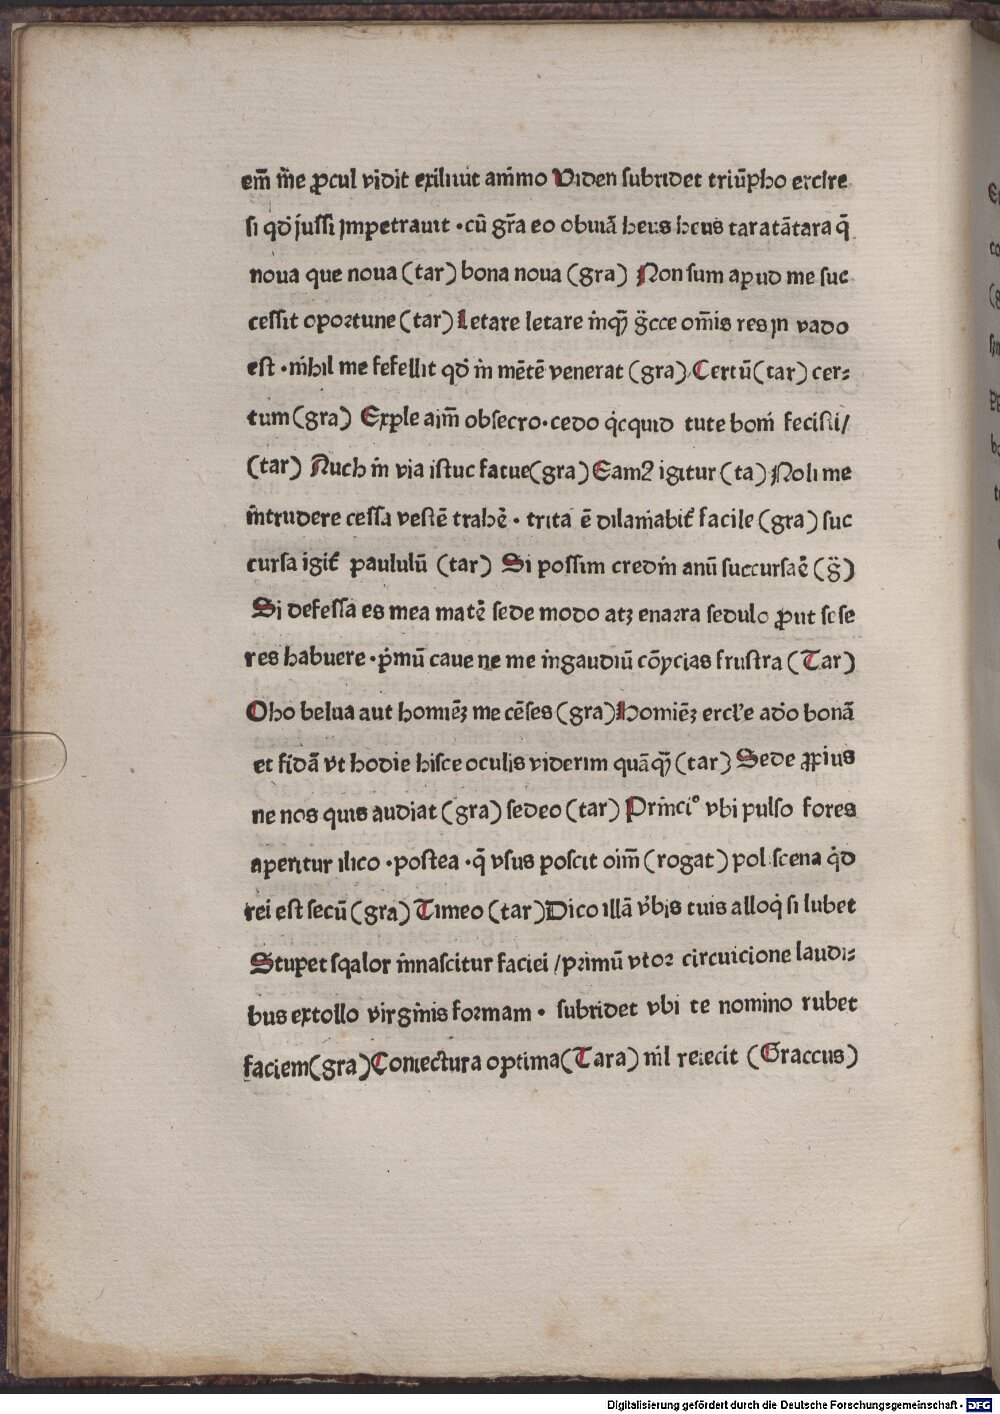 em̄ m̄e ꝓcul vidit exiliuit am̄mo Viden subridet triūpho ercl̵e
si qd̓ jussi jmpetrauit · cū gr̄a eo obuiā heus heus taratātara q̄
noua que noua (tar) bona noua (gra) Non sum apud me suc
cessit oportune (tar) Letare letare īnqꝫ̄ g̈cce om̄is res jn vado
est · nīhil me fefellit qd̓ īn mētē venerat (gra) Certū (tar) cer⸗
tum (gra) Exple aīm̄ obsecro · cedo qͥcquid tute bonī fecisti/
(tar) Nuch īn via istuc fatue (gra) Eamꝰ igitur (ta) Noli me
īntrudere cessa vestē trahē · trita ē dilanīabit᷑ facile (gra) suc
cursa igit᷑ paululū (tar) Si possim credīn anū succursaē (g̈)
Si defessa es mea matē sede modo atꝫ enarra sedulo ꝓut sese
res habuere · pͥmū caue ne me īngaudiū cōycias frustra (Tar)
Oho belua aut homiēꝫ me cēses (gra) Homiēꝫ ercl̵e ad̓o bonā
et fidā vt hodie hisce oculis viderim quāqꝫ̄ (tar) Sede ꝓpius
ne nos quis audiat (gra) sedeo (tar) Prīnciᵒ vbi pulso fores
aperitur ilico · postea · q̄ vsus poscit oīm̄ (rogat) pol scena qͥd
rei est secū (gra) Timeo (tar) Dico illā v̓bis tuis alloqͥ si lubet
Stupet sqalor īnnascitur faciei / primū vtor circuicione laudi⸗
bus extollo virgīnis formam · subridet vbi te nomino rubet
faciem (gra) Coniectura optima (Tara) nīl reiecit (Graccus)
Digitalisierung gefördert durch die Deutsche Forschungsgemeinschaft · DFG